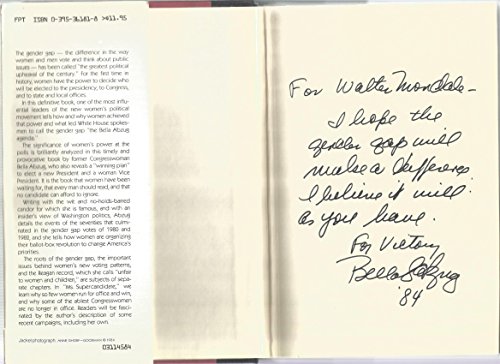 FPT ISBN 0-395-36181-8 >$11.95
The gender gap — the difference in the way
women and men vote and think about public
issues — has been called "the greatest political
upheaval of the century." For the first time in
history, women have the power to decide who
will be elected to the presidency, to Congress,
and to state and local offices.
In this definitive book, one of the most influ-
ential leaders of the new women's political
movement tells how and why women achieved
that power and what led White House spokes-
men to call the gender gap "the Bella Abzug
agenda."
The significance of women's power at the
polls is brilliantly analyzed in this timely and
provocative book by former Congresswoman
Bella Abzug, who also reveals a "winning plan"
to elect a new President and a woman Vice
President. It is the book that women have been
waiting for, that every man should read, and that
no candidate can afford to ignore.
Writing with the wit and no-holds-barred
candor for which she is famous, and with an
insider's view of Washington politics, Abzug
details the events of the seventies that culmi-
nated in the gender gap votes of 1980 and
1982, and she tells how women are organizing
their ballot-box revolution to change America's
priorities.
The roots of the gender gap, the important
issues behind women's new voting patterns,
and the Reagan record, which she calls "unfair
to women and children," are subjects of sepa-
rate chapters. In "Ms. Supercandidate," we
learn why so few women run for office and win,
and why some of the ablest Congresswomen
are no longer in office. Readers will be fasci-
nated by the author's description of some
recent campaigns, including her own.
Jacket photograph ANNE
© 1984
03114584
For Walter Mondale —
I hope the
gender gap will
make a difference.
I believe it will.
as you have.
For Victory
Bella Abzug
'84